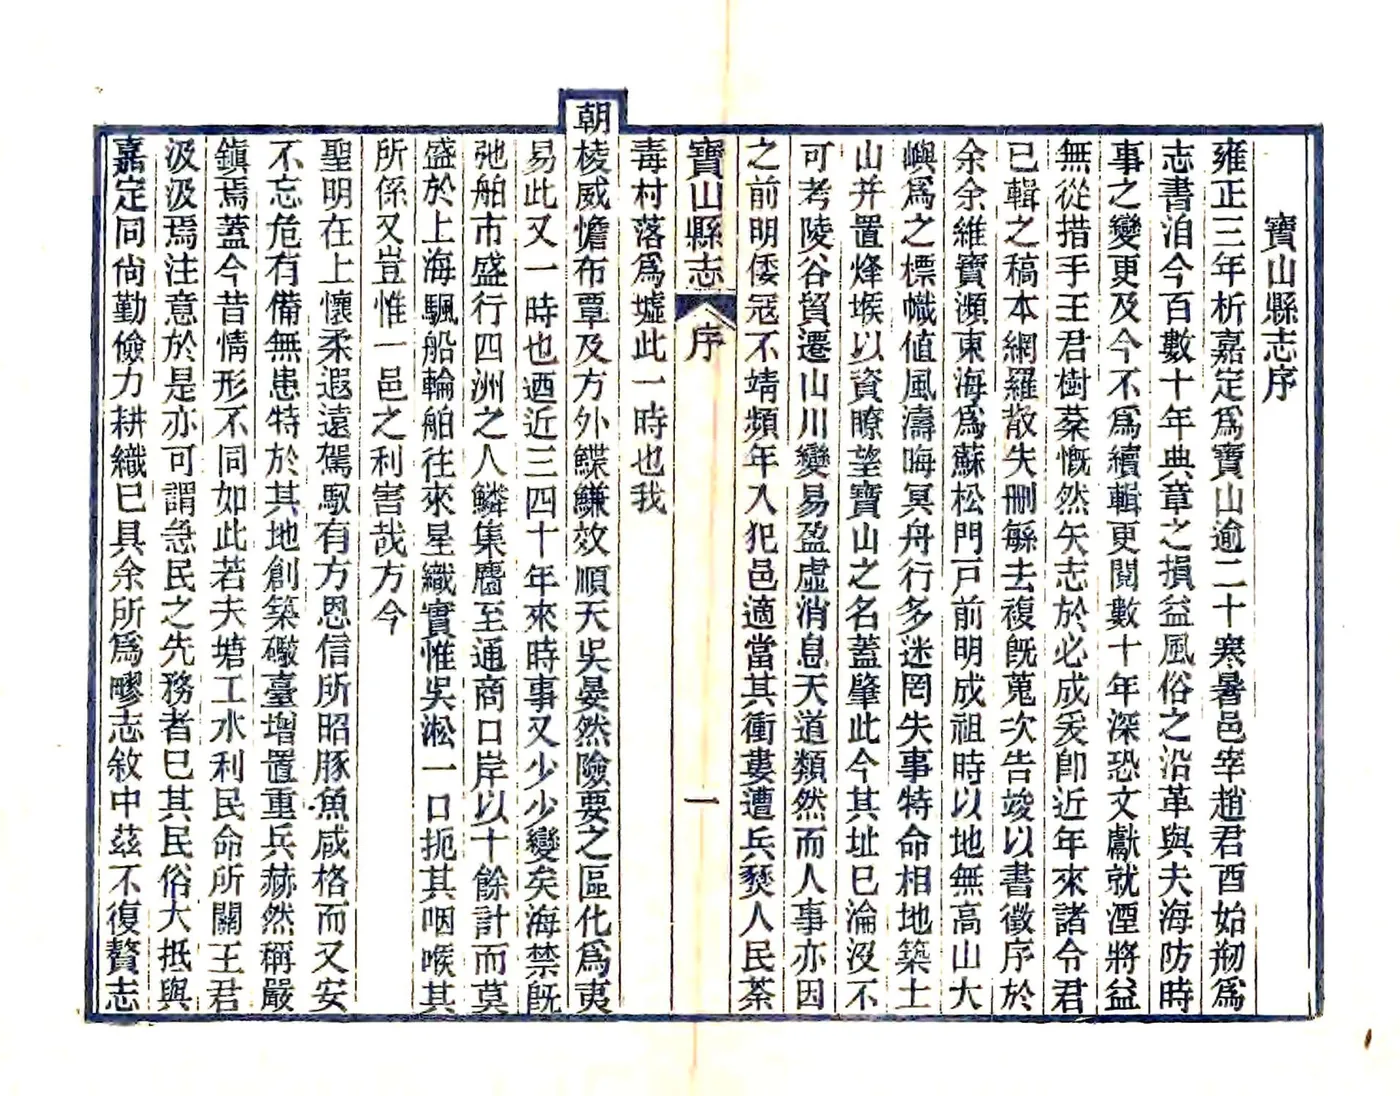 寶山縣志序
雍正三年析嘉定爲寶山逾二十寒暑邑宰趙君酉始刱爲
志書洎今百數十年典章之損益風俗之沿革與夫海防時
事之變更及今不爲續輯更閱數十年深恐文獻就湮將益
無從措手王君樹棻慨然矢志於必成爰卽近年來諸令君
已輯之稿本網羅散失刪緐去複旣蒐次告竣以書徵序於
余余維寶瀕東海爲蘇松門戸前明成祖時以地無高山大
嶼爲之標幟値風濤晦冥舟行多迷罔失事特命相地築土
山并置烽堠以資瞭望寶山之名蓋肇此今其址已淪沒不
可考陵谷貿遷山川變易盈虛消息天道類然而人事亦因
之前明倭冦不靖頻年入犯邑適當其衝婁遭兵燹人民荼
寶山縣志
序
一
毒村落爲墟此一時也我
朝棱威憺布覃及方外鰈鰜效順天吳晏然險要之區化爲夷
易此又一時也迺近三四十年來時事又少少變矣海禁旣
弛舶市盛行四洲之人鱗集麕至通商口岸以十餘計而莫
盛於上海颿船輪舶往來星織實惟吳淞一口扼其咽喉其
所係又豈惟一邑之利害哉方今
聖明在上懷柔遐遠駕馭有方恩信所昭豚魚咸格而又安
不忘危有備無患特於其地創築礮臺增置重兵赫然稱嚴
鎮焉蓋今昔情形不同如此若夫塘工水利民命所關王君
汲汲焉注意於是亦可謂急民之先務者已其民俗大抵與
嘉定同尙勤儉力耕織已具余所爲疁志敘中茲不復贅志